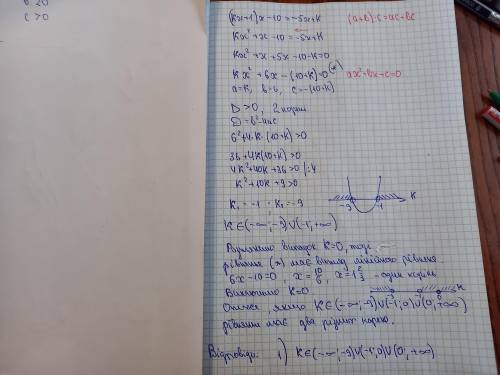 c>0
(kx+1)x-10=-5x+k (a+b)·c=ac+bc
kx²+x-10=-5x+k
kx²+x+5x-10-k=0
kx²+6x-(10+k)=0 (*) ax²+bx+c=0
a=k, b=6, c=-(10+k)
D>0, 2 корені
D=b²-4ac
6²+4·k·(10+k)>0
36+4k(10+k)>0
4k²+40k+36>0 |:4
k²+10k+9>0
k₁=-1 k₂=-9 -9 -1 k
k∈(-∞;-9)∪(-1;+∞)
випадок k=0, тоді
рівняння (*) має вигляд лінійного рівняння
6x-10=0 x=10/6, x=1 2/3 - один корінь
Виключимо k=0
Отже, якщо k∈(-∞;-9)∪(-1;0)∪(0;+∞)
рівняння має два різних корені.
Відповідь: 1) k∈(-∞;-9)∪(-1;0)∪(0;+∞)